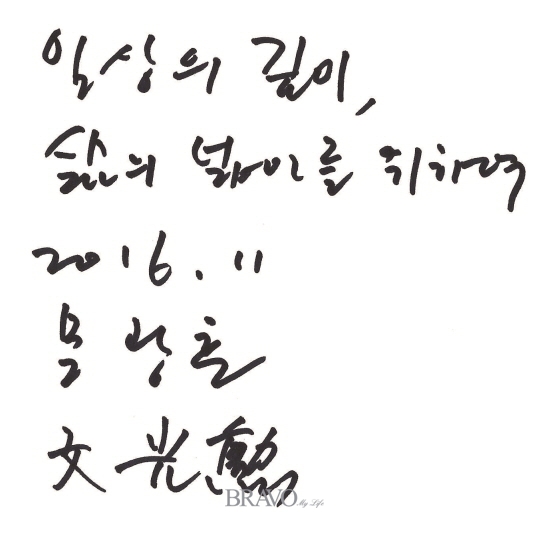 일상의 깊이,
삶의 넓이를 위하여
2016.11
문광훈
文光勳
BRAVO My Life